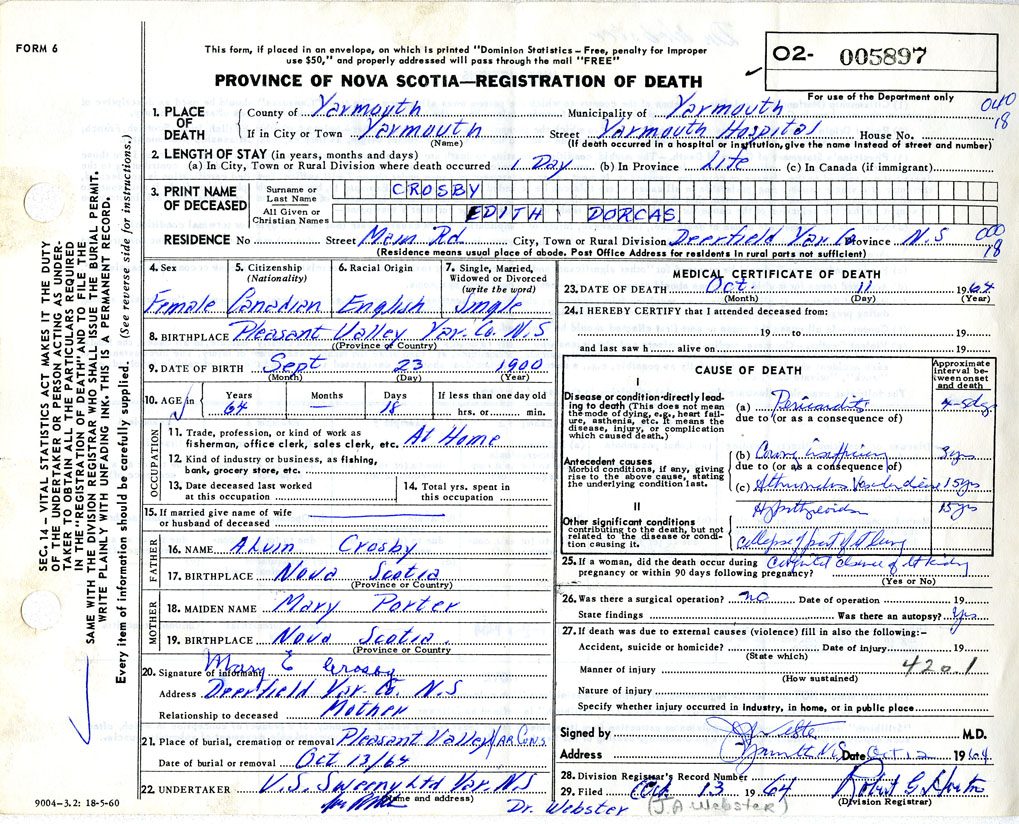 FORM 6
This form, if placed in an envelope, on which is printed "Dominion Statistics – Free, penalty for improper
use $50," and properly addressed will pass through the mail "FREE"
PROVINCE OF NOVA SCOTIA—REGISTRATION OF DEATH
O2- 005897
For use of the Department only
1. PLACE OF DEATH
County of Yarmouth Municipality of Yarmouth 040 18
If in City or Town Yarmouth Street Yarmouth Hospital House No.
(Name) (If death occurred in a hospital or institution, give the name instead of street and number)
2. LENGTH OF STAY (in years, months and days)
(a) In City, Town or Rural Division where death occurred 1 Day (b) In Province Life (c) In Canada (if immigrant)
3. PRINT NAME OF DECEASED
Surname or Last Name CROSBY
All Given or Christian Names EDITH DORCAS
RESIDENCE No Street Main Rd. City, Town or Rural Division Deerfield Yar. Co Province N.S 000 18
(Residence means usual place of abode. Post Office Address for residents in rural parts not sufficient)
4. Sex 5. Citizenship (Nationality) 6. Racial Origin 7. Single, Married, Widowed or Divorced (write the word)
Female Canadian English Single
8. BIRTHPLACE Pleasant Valley Yar. Co. N.S
(Province or Country)
9. DATE OF BIRTH Sept 23 1900
(Month) (Day) (Year)
10. AGE in Years Months Days If less than one day old
64 — 18 hrs. or min.
OCCUPATION
11. Trade, profession, or kind of work as
fisherman, office clerk, sales clerk, etc. At Home
12. Kind of industry or business, as fishing,
bank, grocery store, etc.
13. Date deceased last worked at this occupation
14. Total yrs. spent in this occupation
15. If married give name of wife
or husband of deceased
FATHER
16. NAME Alvin Crosby
17. BIRTHPLACE Nova Scotia
(Province or Country)
MOTHER
18. MAIDEN NAME Mary Porter
19. BIRTHPLACE Nova Scotia.
(Province or Country)
20. Signature of informant Mary E Crosby
Address Deerfield Yar. Co. N.S
Relationship to deceased Mother
21. Place of burial, cremation or removal Pleasant Valley YAR CO NS
Date of burial or removal Oct 13/64
22. UNDERTAKER V.S. Sweeny Ltd Yar. N.S
(Name and address)
9004-3.2: 18-5-60
MEDICAL CERTIFICATE OF DEATH
23. DATE OF DEATH Oct. 11 1964
(Month) (Day) (Year)
24. I HEREBY CERTIFY that I attended deceased from:
19 to 19
and last saw h alive on 19
CAUSE OF DEATH
Approximate interval between onset and death
I
Disease or condition directly leading to death (This does not mean the mode of dying, e.g., heart failure, asthenia, etc. It means the disease, injury, or complication which caused death.)
(a) Pericarditis 4-5 dys
due to (or as a consequence of)
Antecedent causes
Morbid conditions, if any, giving rise to the above cause, stating the underlying condition last.
(b) insufficiency 3 yrs
due to (or as a consequence of)
(c) 15 yrs
II
Other significant conditions
contributing to the death, but not related to the disease or condition causing it.
15 yrs
collapse of part of lung
25. If a woman, did the death occur during
pregnancy or within 90 days following pregnancy?
(Yes or No)
26. Was there a surgical operation? no Date of operation 19
State findings Was there an autopsy? Yes
27. If death was due to external causes (violence) fill in also the following:–
Accident, suicide or homicide? Date of injury 19
(State which)
Manner of injury 420.1
(How sustained)
Nature of injury
Specify whether injury occurred in industry, in home, or in public place
Signed by M.D.
Address Date Oct 12 1964
28. Division Registrar's Record Number
29. Filed Oct. 13 1964
(Division Registrar)
Dr. Webster (J.A. Webster)
SEC. 14 – VITAL STATISTICS ACT MAKES IT THE DUTY
OF THE UNDERTAKER OR PERSON ACTING AS UNDER-
TAKER TO OBTAIN ALL THE PARTICULARS REQUIRED
IN THE "REGISTRATION OF DEATH" AND TO FILE THE
SAME WITH THE DIVISION REGISTRAR WHO SHALL ISSUE THE BURIAL PERMIT.
WRITE PLAINLY WITH UNFADING INK. THIS IS A PERMANENT RECORD.
Every item of information should be carefully supplied. (See reverse side for instructions.)